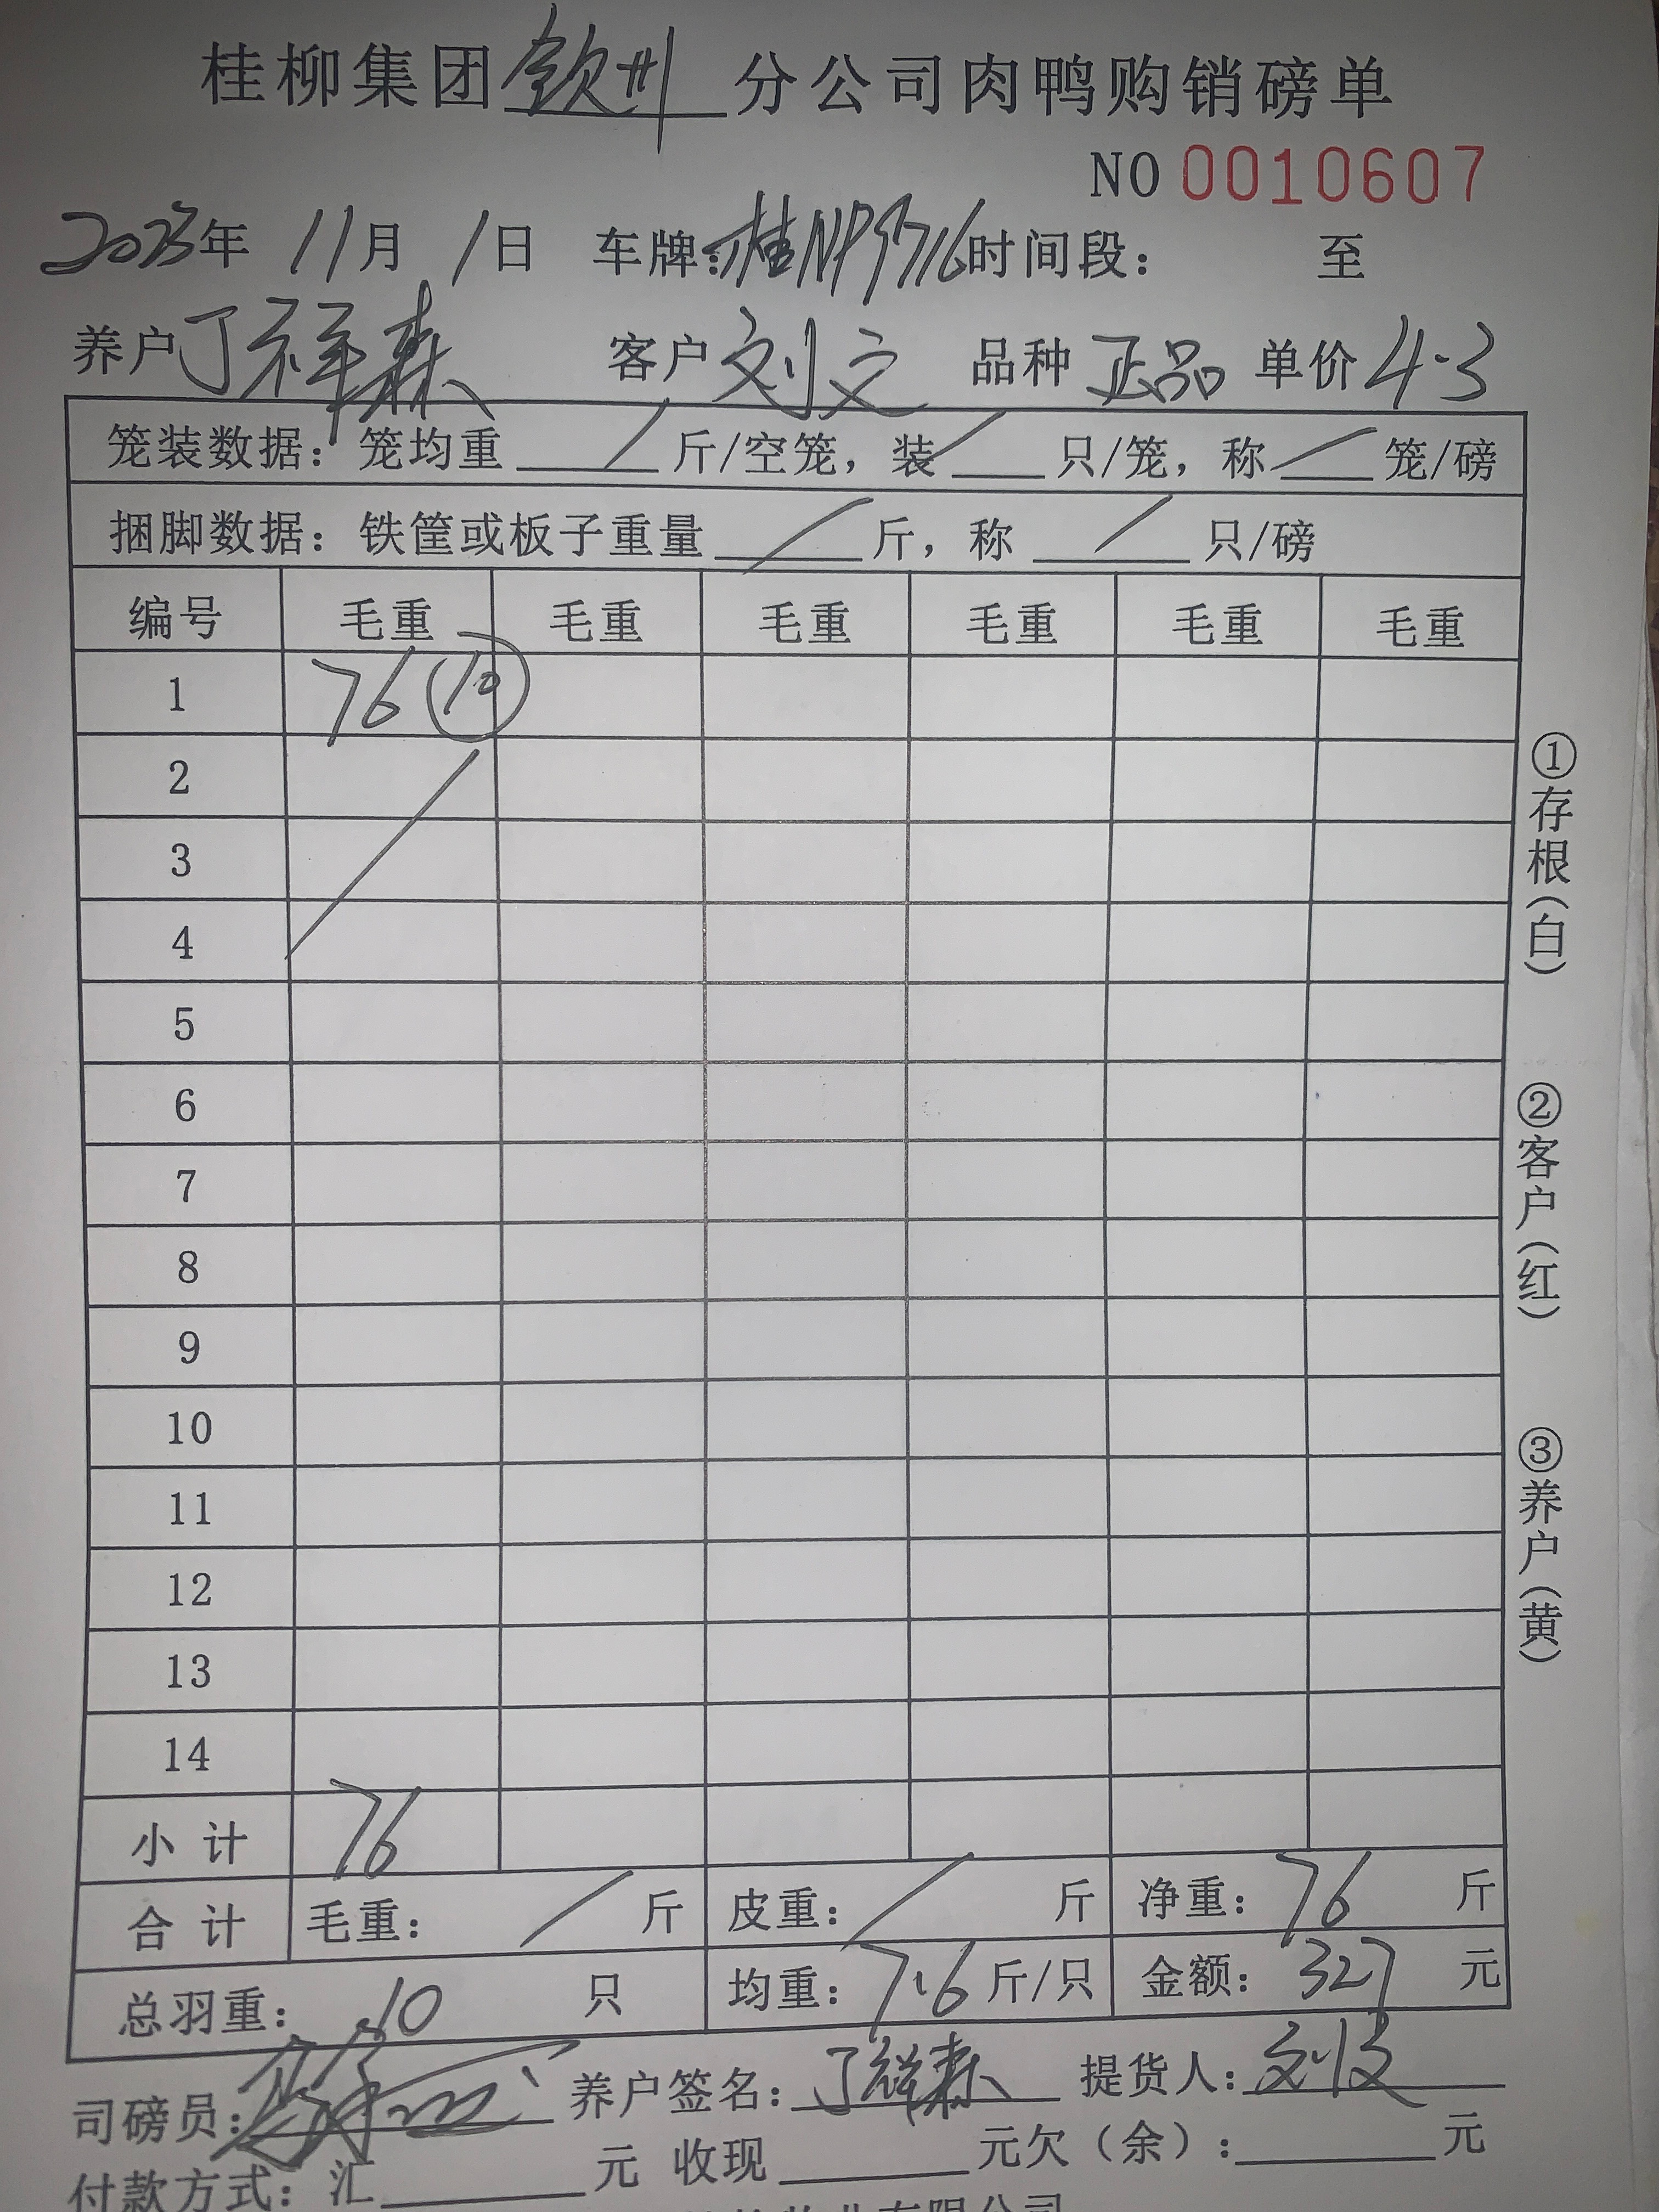 桂柳集团钦州分公司肉鸭购销磅单
NO 0010607
2023年 11月 1日 车牌:桂NP9716时间段: 至
养户丁祥森 客户刘文 品种 正品 单价4.3
笼装数据: 笼均重 / 斤/空笼, 装 / 只/笼, 称 / 笼/磅
捆脚数据: 铁筐或板子重量 / 斤, 称 / 只/磅
编号 毛重 毛重 毛重 毛重 毛重 毛重
1 76 ⑩
2
3
4
5
6
7
8
9
10
11
12
13
14
小计 76
合计 毛重: / 斤 皮重: / 斤 净重: 76 斤
总羽重: 10 只 均重: 7.6 斤/只 金额: 327 元
司磅员: 养户签名: 丁祥森 提货人: 刘文
付款方式: 汇 元 收现 元欠(余): 元
有限公司
①存根(白)
②客户(红)
③养户(黄)